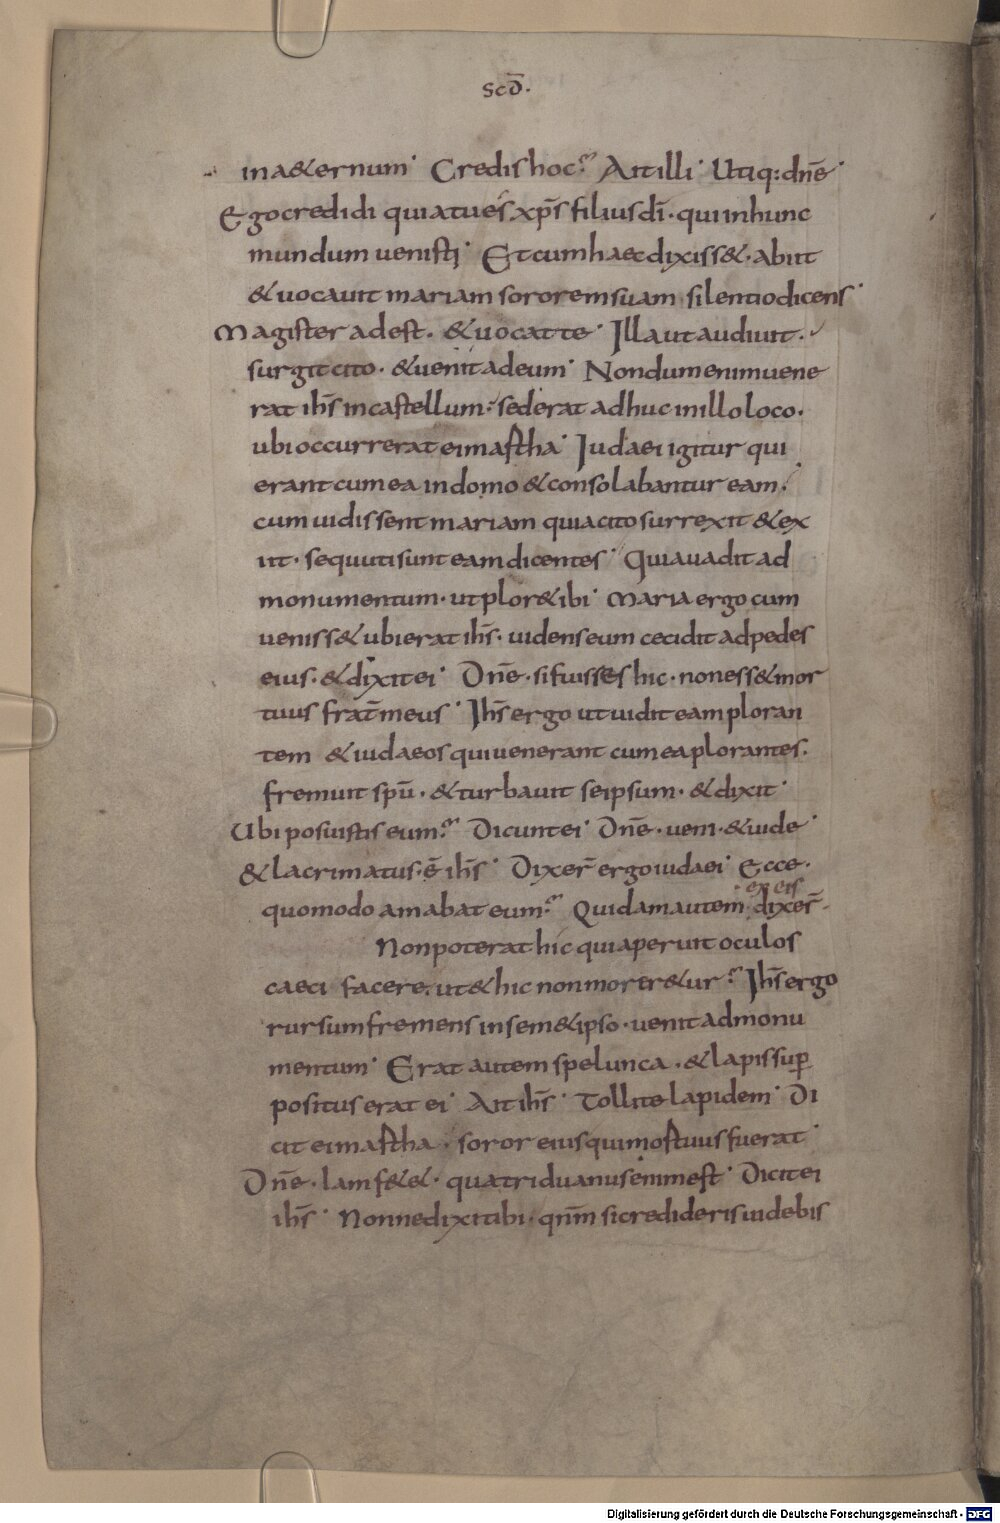 scd̄.
in a&ernum· Credis hoc? Ait illi· Utiq: dn̄e·
Ego credidi quia tu es xp̄s filius dī· qui in hunc
mundum uenisti· Et cum haec dixiss&· abiit
& uocauit mariam sororem suam silentio dicens·
Magister adest· & uocat te· Illa ut audiuit·
surgit cito· & uenit ad eum· Nondum enim uene
rat ih̄s in castellum· sed erat adhuc in illo loco·
ubi occurrerat ei martha· Iudaei igitur qui
erant cum ea in domo & consolabantur eam·
cum uidissent mariam quia cito surrexit & ex
iit· sequuti sunt eam dicentes· Quia uadit ad
monumentum· ut plor& ibi· Maria ergo cum
ueniss& ubi erat ih̄s· uidens eum cecidit ad pedes
eius· & dixit ei· Dn̄e· si fuisses hic· non ess& mor
tuus frat̄ meus· Ih̄s ergo ut uidit eam ploran
tem & iudaeos qui uenerant cum ea plorantes·
fremuit spū· & turbauit se ipsum· & dixit·
Ubi posuistis eum? Dicunt ei· Dn̄e· ueni· & uide·
& lacrimatus· ē ih̄s· Dixer̄ ergo iudaei· Ecce·
quomodo amabat eum? Quidam autem ex eis dixer̄
Non poterat hic qui aperuit oculos
caeci facere, ut & hic non morer&ur? Ih̄s ergo
rursum fremens in sem&ipso· uenit ad monu
mentum· Erat autem spelunca· & lapis sup̱
positus erat ei· Ait ih̄s· Tollite lapidem· Di
cit ei martha· soror eius qui mortuus fuerat·
Dn̄e· Iam f&&· quatriduanus enim est· Dicit ei
ih̄s· Nonne dixi tibi· qnm̄ si credideris uidebis
Digitalisierung gefördert durch die Deutsche Forschungsgemeinschaft - DFG